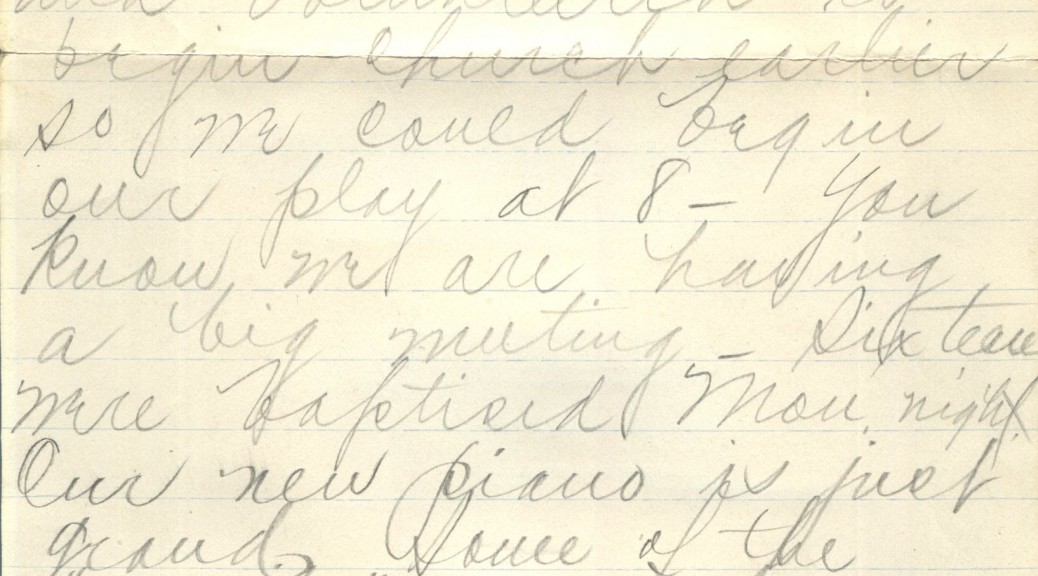 and volunteered to
begin church earlier
so we could begin
our play at 8 - You
know we are having
a big meeting - Sixteen
were baptised Mon. night.
Our new piano is just
grand. Some of the